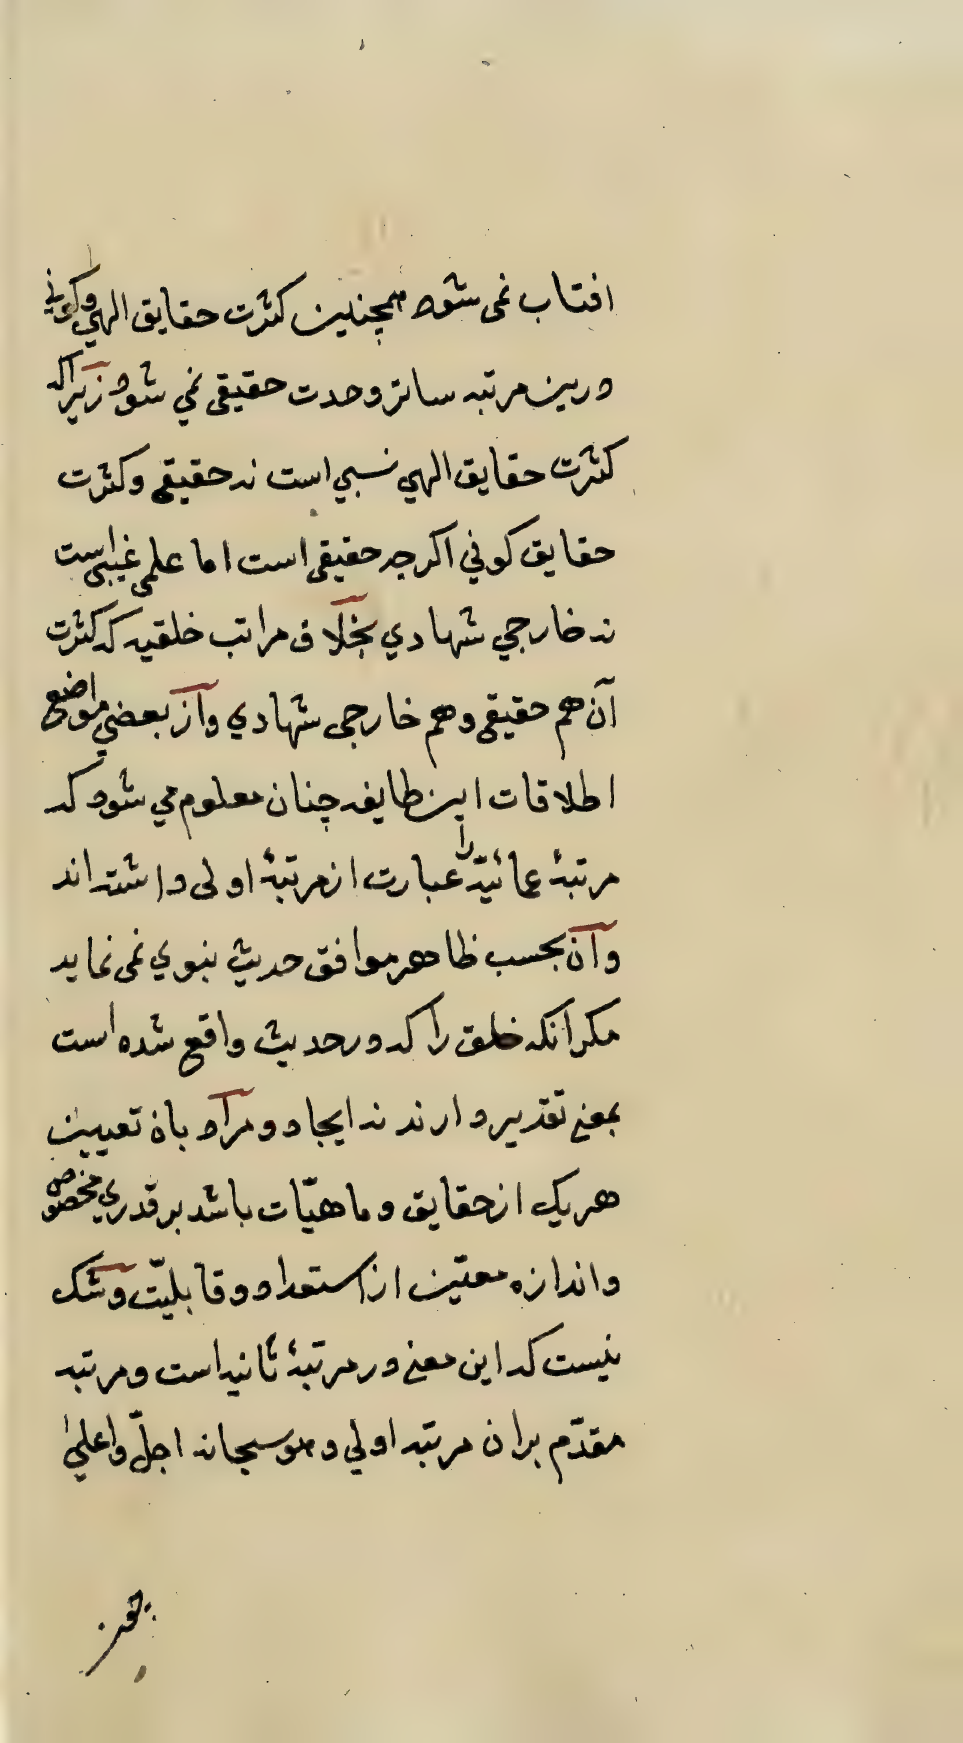 افتاب نمی شود همچنین کثرت حقایق الهی و کونی
درین مرتبه ساتر وحدت حقیقی نمی شود زیراکه
کثرت حقایق الهی نسبی است نه حقیقی و کثرت
حقایق کونی اکرچه حقیقی است اما علمی غیبی است
نه خارجی شهادی بخلاف مراتب خلقیه که کثرت
آن هم حقیقی و هم خارجی شهادی و از بعضی مواضع
اطلاقات این طایفه چنان معلوم می شود که
مرتبهٔ عمائیّة را عبارت از مرتبهٔ اولی داشته اند
وآن بحسب ظاهر موافق حدیث نبوی نمی نماید
مکر انکه خلق را که در حدیث واقع شده است
بمعنی تقدیر دارند نه ایجاد و مراد بان تعیین
هر یک از حقایق و ماهیّات باشد بر قدری مخصوص
و اندازه معیّن از استعداد و قابلیّت و شک
نیست که این معنی در مرتبهٔ ثانیه است و مرتبه
مقدّم بران مرتبه اولی و هو سبحانه اجلّ و اعلیٰ